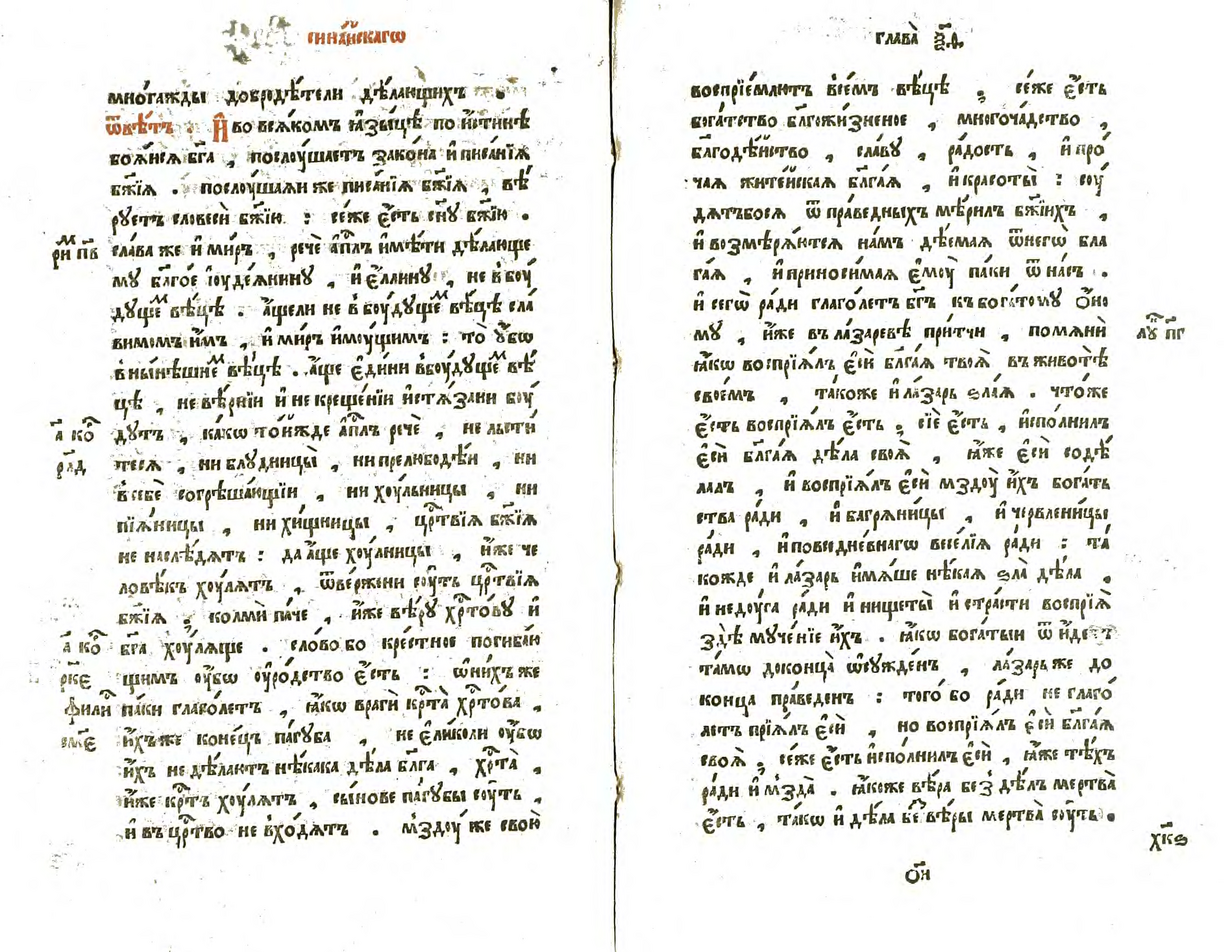 синаи́скагѡ
мно́гажды добродѣ́тели дѣ́лающихъ
ѿвѣ́тъ . И҆ во вся́комъ ꙗ҆зы́цѣ по и҆́стинѣ
боя́ися бг҃а , послоу́шаетъ зако́на и҆ писа́нїѧ
бж҃їѧ . послоу́шаяи же писа́нїѧ бж҃їѧ , вѣ́
руетъ словесѝ бж҃їю : се́же є҆́сть сн҃у бж҃їю .
сла́ва же и҆ ми́ръ , речѐ а҆пⷭ҇лъ и҆мѣ́ти дѣ́лающе
ри пв
му благо́е і҆оуде́янину , и҆ є҆́ллину , не в боу́
дуще вѣ́цѣ . а҆́щели не в боу́дуще вѣ́цѣ сла́
вимомъ и҆̀мъ , и҆ ми́ръ и҆моу́щимъ : то̀ ᲂу҆́бѡ
в ны́нѣшне вѣ́цѣ . а҆́ще є҆ди́ни в боу́дуще вѣ́
цѣ , невѣ́рнїи и҆ некреще́нїи и҆стѧ́зани боу́
а҃ ко
дутъ , ка́кѡ то́иже а҆пⷭ҇лъ речѐ , не льсти́
рл҃д
теся , ни блудницы̀ , ни прелюбодѣ́и , ни
в себѐ согрѣша́ющїи , ни хоу́льницы , ни
пїя́ницы , ни хи́щницы , црⷭ҇твїѧ бж҃їѧ
не наслѣ́дятъ : да а҆́ще хоу́лницы , и҆̀же че
ловѣ́къ хоу́лятъ , ѿве́ржени соу́ть црⷭ҇твїѧ
бж҃їѧ , колмѝ па́че , и҆̀же вѣ́ру хрⷭ҇то́ву и҆
а҃ ко
бг҃а хоу́ляще . сло́во бо кре́стное погиба́ю
рке
щимъ ᲂу҆́бѡ ᲂу҆ро́дство є҆́сть : ѡ҆ ни́хъ же
фили
па́ки глаго́летъ , ꙗ҆́кѡ врагѝ крⷭ҇та̀ хрⷭ҇то́ва ,
смє
и҆́хъже коне́цъ па́губа , не є҆ли́коли ᲂу҆́бѡ
и҆́хъ не дѣ́лаютъ нѣ́кака дѣ́ла бл҃га , хрⷭ҇та̀ ,
и҆̀же крⷭ҇тъ хоу́лятъ , сы́нове па́губы соу́ть ,
и҆ въ црⷭ҇тво не вхо́дятъ . мздоу́ же свою̀
глава̀ ѯ҃д
воспрїе́млютъ в се́мъ вѣ́цѣ , се́же є҆́сть
бога́тство благожи́зненое , многоча́дство ,
благоде́нство , сла́ву , ра́дость , и҆ про́
чая жите́йская блага́я , и҆ красоты̀ : соу́
дятъбося ѿ пра́ведныхъ мѣ́рилъ бж҃їихъ ,
и҆ возмѣ́рꙗются на́мъ дѣ́емая ѿ негѡ̀ бла
га́я , и҆ приноси́мая є҆моу̀ па́ки ѿ на́съ .
и҆ сегѡ̀ ра́ди глаго́летъ бг҃ъ къ бога́тому ѻ҆́но
му , и҆́же въ ла́заревѣ при́тчи , помянѝ
лу пг
ꙗ҆́кѡ воспрїѧ́лъ є҆сѝ блага́я твоя̀ въ животѣ̀
свое́мъ , та́коже и҆ ла́зарь ѕла́я . что́же
є҆́сть воспрїѧ́лъ є҆́сть , сїѐ є҆́сть , и҆спо́лнилъ
є҆сѝ блага́я дѣ́ла своя̀ , ꙗ҆́же є҆сѝ содѣ́
лалъ , и҆ воспрїѧ́лъ є҆сѝ мздоу̀ и҆́хъ бога́тъ
ства ра́ди , и҆ багряни́цы , и҆ червлени́цы
ра́ди , и҆ повседне́внагѡ весе́лїѧ ра́ди : та́
кожде и҆ ла́зарь и҆мя́ше нѣ́кая ѕла̀ дѣ́ла ,
и҆ недоу́га ра́ди и҆ нищеты̀ и҆ стра́сти воспрїѧ̀
здѣ̀ муче́нїе и҆́хъ . ꙗ҆́кѡ бога́тыи ѿи́детъ
та́мѡ доконца̀ ѡ҆сужде́нъ , ла́зарь же до
конца пра́веденъ : того́ бо ра́ди не глаго́
летъ прїѧ́лъ є҆сѝ , но воспрїѧ́лъ є҆сѝ блага́я
своя̀ , се́же є҆́сть и҆спо́лнилъ є҆сѝ , ꙗ҆́же тѣ́хъ
ра́ди и҆ мзда̀ . ꙗ҆́коже вѣ́ра без дѣ́лъ мертва̀
є҆́сть , та́кѡ и҆ дѣ́ла без вѣ́ры мертва̀ соу́ть .
хк҃ѕ
ѻ҃н